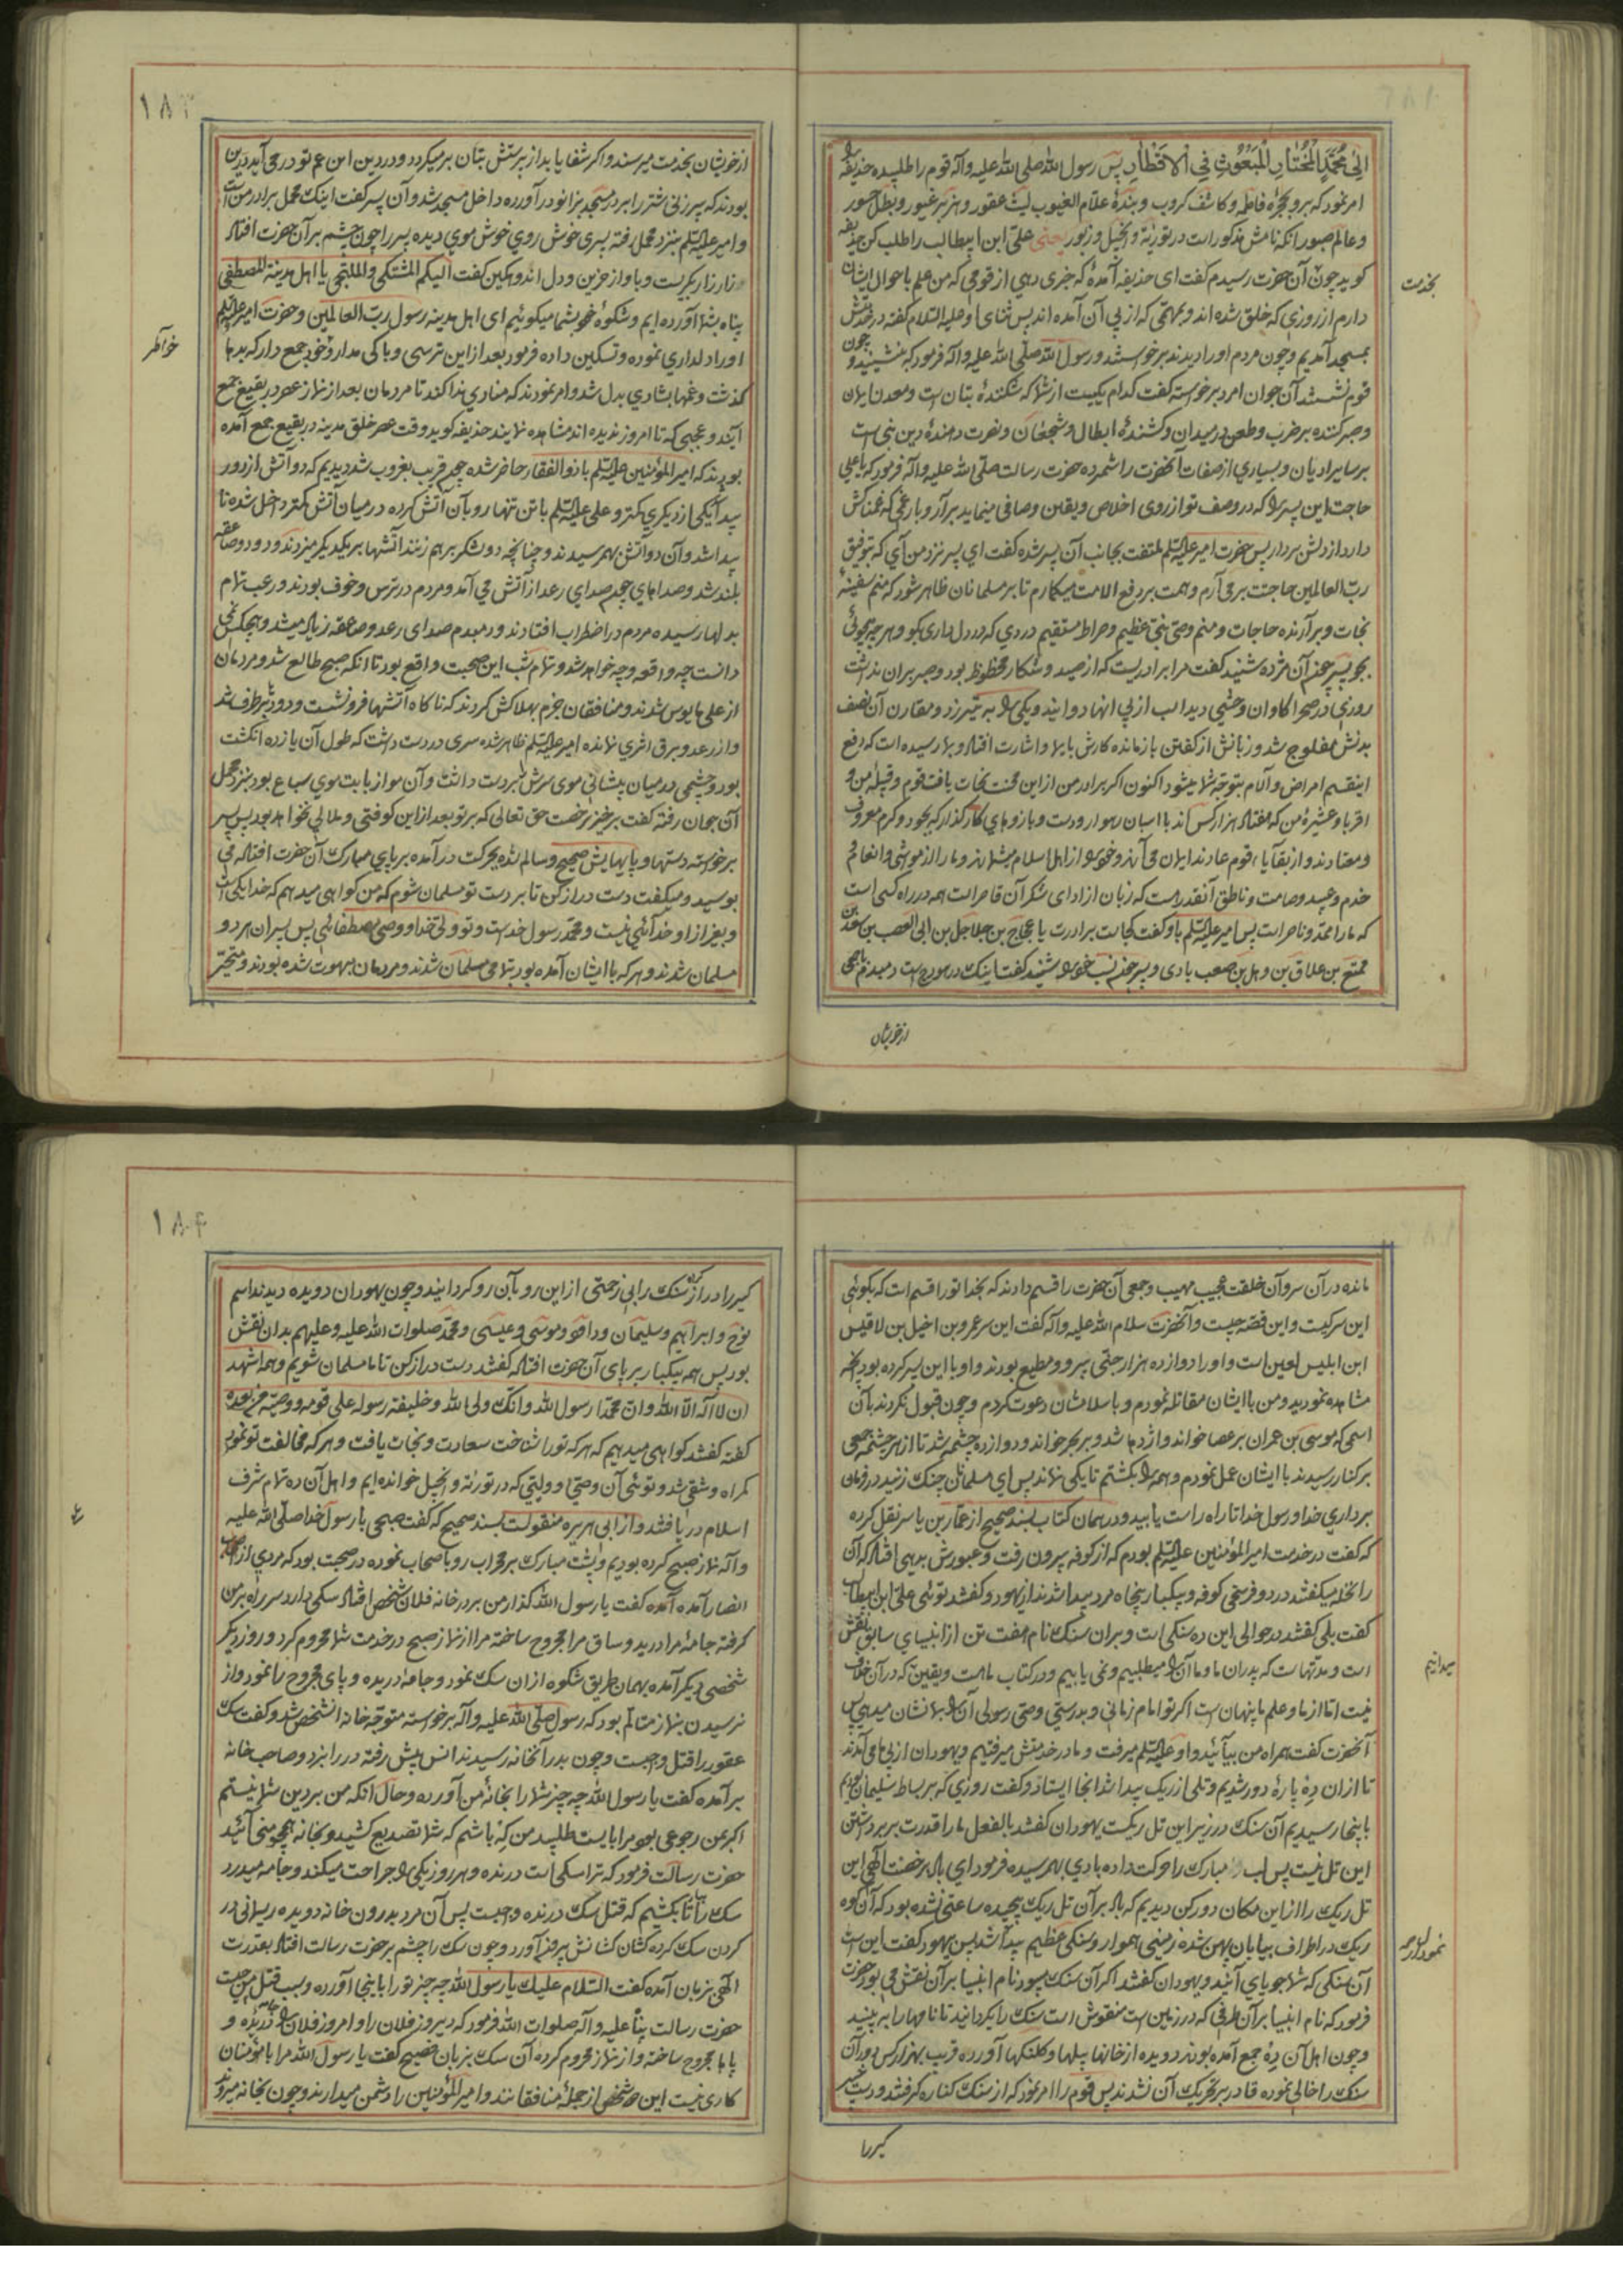 الی محمد المختار المبعوث فی الاقطار پس رسول الله صلی الله علیه وآله قوم را طلبیده حذیفه را
امر نمود که برو بحجرهٔ فاطمه و کاشف کروب و بندهٔ علام الغیوب لیث عقور و هزبر غیور و بطل جسور
و عالم صبور آنکه نامش مذکور است در توریة و انجیل و زبور یعنی علی ابن ابیطالب را طلب کن حذیفه
کوید چون آن حضرت رسیدم کفت ای حذیفه آمدهٔ که خبری دهی از قومی که من علم باحوال ایشان
بخدمت
دارم از روزی که خلق شده اند و بهمتی که از پی آن آمده اند پس ثنای او علیه السلام کفته در خدمتش
بمسجد آمدیم و چون مردم او را دیدند برخواستند و رسول الله صلی الله علیه وآله فرمود که بنشینید و چون
قوم نشستند آن جوان امرد برخواسته کفت کدام یکیست از شما که شکنندهٔ بتان است و معدن ایمان
و صبر کننده بر ضرب و طعن در میدان و کشندهٔ ابطال و شجعان و نصرت دهندهٔ دین نبی است
بر سایر ادیان و بسیاری از صفات آنحضرت را شمرده حضرت رسالت صلی الله علیه وآله فرمود که یا علی
حاجت این پسر را که در وصف تو از روی اخلاص و یقین وصافی مینماید برآر و بار غمی که غمناکش
دارد از دلش بردار پس حضرت امیر علیه السلم ملتفت بجانب آن پسر شده کفت ای پسر نزد من آی که بتوفیق
رب العالمین حاجتت برمی آرم و همت بر دفع الامت میکمارم تا بر مسلمانان ظاهر شود که منم سفینهٔ
نجات و برآرنده حاجات و منم وصی نبی عظیم و صراط مستقیم دردی که در دل داری بکو و هر چه میجوئی
بجو پسر چون آن مژده شنید کفت مرا برادریست که از صید و شکار محظوظ بود و صبر بران نداشت
روزی در صحرا کاوان وحشی دید اسب از پی انها دوانید و یکی را به تیر زد و مقارن آن نصف
بدنش مفلوج شد و زبانش از کفتن بازمانده کارش بایما و اشارت افتاد و بما رسیده است که دفع
اینقسم امراض و آلام بتوجه شما میشود اکنون اکر برادر من از این محنت نجات یافت قوم و قبیلهٔ من و
اقربا و عشیرهٔ من که هفتاد هزار کس اند با اسبان رهوار و دست و بازوهای کارکذار که بجود و کرم معروف
و معتادند و از بقایای قوم عادند ایمان می آرند و خود را از اهل اسلام میشمارند و ما را از مواشی و انعام و
خدم و عبید و صامت و ناطق آنقدر است که زبان از ادای شکر آن قاصر است همه در راه کسی است
که ما را ممد و ناصر است پس امیر علیه السلم باو کفت کجاست برادرت یا عجاج بن حلاحل بن ابی العصب بن سعد بن
ممتع بن علاق بن وهل بن صعب بادی و پسر چون نسب خود را شنید کفت اینک در هودج است و مبدم با جمعی
از خویشان
۱۸۳
از خویشان بخدمت میرسند و اکر شفا یابد از پرستش بتان برمیکردد و در دین ابن عم تو درمی آید درین
بودند که پیرزنی شتر را بر در مسجد بزانو درآورده داخل مسجد شد و آن پسر کفت اینک محمل برادر من است
و امیر علیه السلم بنزد محمل رفته پسری خوش روی خوش موی دیده پسر را چون چشم بر آن حضرت افتاد
زار زار بکریست و باواز حزین و دل اندوهکین کفت الیکم المشتکی و الملتجی یا اهل مدینة المصطفی
پناه بشما آورده ایم و شکوهٔ خود بشما میکوئیم ای اهل مدینه رسول رب العالمین و حضرت امیر علیه السلم
خواطر
او را دلداری نموده و تسکین داده فرمود بعد از این ترسی و باکی مدار و خود جمع دار که بدیها
کذشت و غمها بشادی بدل شد و امر نمودند که منادی ندا کند تا مردمان بعد از نماز عصر در بقیع جمع
آیند و عجبی که تا امروز ندیده اند مشاهده نمایند حذیفه کوید وقت عصر خلق مدینه در بقیع جمع آمده
بودند که امیر المؤمنین علیه السلم با ذو الفقار حاضر شده چون قریب بغروب شد دیدیم که دو اتش از دور
پیدا یکی از دیکری کمتر و علی علیه السلم با تن تنها رو بآن آتش کرده در میان آتش کمتر داخل شده نا
پیدا شد و آن دو آتش بهم رسیدند و چنانچه دو لشکر بر هم زنند اتشها بر یکدیکر میزدند و دود و صاعقه
بلند شد و صداهای چون صدای رعد از آتش می آمد و مردم در ترس و خوف بودند و رعب تمام
بدلها رسیده مردم در اضطراب افتادند و دمبدم صدای رعد و صاعقه زیاد میشد و هیچکس نمی
دانست چه واقع و چه خواهد شد و تمام شب این صحبت واقع بود تا انکه صبح طالع شد و مردمان
از علی مایوس شدند و منافقان جزم بهلاکش کردند که ناکاه آتشها فرونشست و دود برطرف شد
و از رعد و برق اثری نمانده امیر علیه السلم ظاهر شده سری در دست داشت که طول آن یازده انکشت
بود و چشمی در میان پیشانی موی سرش در دست داشت و آن مو از بابت موی سباع بود بنزد محمل
آن جوان رفته کفت برخیز برخصت حق تعالی که بر تو بعد از این کوفتی و ملالی نخواهد بود پس پسر
برخواسته دستها و پایهایش صحیح و سالم شده بحرکت درآمده بر پای مبارک آن حضرت افتاد می
بوسید و میکفت دست دراز کن تا بر دست تو مسلمان شوم که من کواهی میدهم که خدا یکی است
و بغیر از او خدائی نیست و محمد رسول خداست و تو ولی خدا و وصی مصطفائی پس پسران هر دو
مسلمان شدند و هر که با ایشان آمده بود تمامی مسلمان شدند و مردمان مبهوت شده بودند و متحیر
مانده در آن سر و آن خلقت عجیب مهیب و جمعی آن حضرت را قسم دادند که بخدا تو را قسم است که بکوئی
این سر کیست و این قصه چیست و آنحضرت سلام الله علیه وآله کفت این سر عمرو بن اخیل بن لاقیس
ابن ابلیس لعین است و او را دوازده هزار جنی پیرو و مطیع بودند و او با این پسر کرده بود آنچه
مشاهده نمودید و من با ایشان مقاتله نمودم و باسلامشان دعوت کردم و چون قبول نکردند بآن
اسمی که موسی بن عمران بر عصا خواند و اژدها شد و بر بحر خواند و دوازده چشمه شد تا از هر چشمه جمعی
بر کنار رسیدند با ایشان عمل نمودم و همه را بکشتم تا یکی نماند پس ای مسلمانان چنک زنید در فرمان
برداری خدا و رسول خدا تا راه راست یابید و در همان کتاب بسند صحیح از عمار بن یاسر نقل کرده
که کفت در خدمت امیر المؤمنین علیه السلم بودم که از کوفه بیرون رفت و عبورش بدیهی افتاد که آن
را نخله میکفتند در دو فرسخی کوفه و بیکبار پنجاه مرد پیدا شدند از یهود و کفتند توئی علی ابن ابیطالب
کفت بلی کفتند در حوالی این ده سنکی است و بران سنک نام هفت تن از انبیای سابق نقش
است و مدتهاست که پدران ما و ما آن را میطلبیم و نمی یابیم و در کتاب ماست و یقین که در آن خلاف
میدانیم
نیست اما از ما و علم ما پنهان است اکر تو امام زمانی و بدرستی وصی رسولی آن را بما نشان میدهی پس
آنحضرت کفت همراه من بیآئید و او علیه السلم میرفت و ما در خدمتش میرفتیم و یهودان از پی ما می آمدند
تا از ان ده پارهٔ دور شدیم و تلی از ریک پیدا شد انجا ایستاد و کفت روزی که بر بساط سلیمان بودیم
باینجا رسیدیم آن سنک در زیر این تل ریکست یهودان کفتند بالفعل ما را قدرت بر برداشتن
این تل نیست پس لب مبارک را حرکت داده بادی بهم رسیده فرمود ای باد برخصت الهی این
تل ریک را از این مکان دور کن دیدیم که باد بر آن تل ریک پیچیده ساعتی نشده بود که آن کوه
ریک در اطراف بیابان پهن شده زمینی هموار و سنکی عظیم پیدا شد پس یهود کفت این است
آن سنکی که شما جویای آنید و یهودان کفتند اکر آن سنک میبود نام انبیا بر آن نقش می بود حضرت
فرمود که نام انبیا بر آن طرفی که در زمین است منقوش است سنک را بکردانید تا نامها را به بینید
و چون اهل آن ده جمع آمده بودند دویده از خانها بیلها و کلنکها آورده قریب بهزار کس دور آن
سنک را خالی نموده قادر بر تحریک آن نشدند پس قوم را امر نمود که از سنک کناره کرفتند و دست خیبر
کیر را
۱۸۴
کیر را دراز سنک را بی زحمتی از این رو بآن رو کردانیدند و چون یهودان دویده دیدند اسم
نوح و ابراهیم و سلیمان و داود و موسی و عیسی و محمد صلوات الله علیه و علیهم بدان نقش
بود پس همه بیکبار بر پای آن حضرت افتاده کفتند دست دراز کن تا ما مسلمان شویم و همه اشهد
ان لا اله الا الله وان محمدا رسول الله وانک ولی الله و خلیفة رسوله علی قومه و وصیه من بعده
کفته کفتند کواهی میدهیم که هر که تو را شناخت سعادت و نجات یافت و هر که مخالفت تو نمود
کمراه و شقی شد و توئی آن وصی و ولیی که در توریة و انجیل خوانده ایم و اهل آن ده تمام شرف
اسلام دریافتند و از ابی هریره منقولست بسند صحیح که کفت صبحی با رسول خدا صلی الله علیه
وآله نماز صبح کرده بودیم و پشت مبارک بر محراب رو باصحاب نموده در صحبت بود که مردی از اصحاب
انصار آمده کفت یا رسول الله کذار من بر در خانه فلان شخص افتاد سکی دارد سر راه بر من
کرفته جامهٔ مرا درید و ساق مرا مجروح ساخته مرا از نماز صبح در خدمت شما محروم کرد و روز دیکر
شخصی دیکر آمده بهمان طریق شکوه از ان سک نمود و جامه دریده و پای مجروح را نمود و از
نرسیدن بنماز متالم بود که رسول صلی الله علیه وآله برخواسته متوجه خانه انشخص شد و کفت سک
عقور را قتل واجبست و چون بدر آنخانه رسیدند انس پیش رفته در را بزد و صاحب خانه
برآمده کفت یا رسول الله چه چیز شما را بخانهٔ من آورده و حال انکه من بر دین شما نیستم
اکر بمن رجوعی بود مرا بایست طلبید من که باشم که شما تصدیع کشید و بخانه همچو منی آئید
حضرت رسالت فرمود که ترا سکی است درنده و هر روز یکی را جراحت میکند و جامه میدرد
سک را بیار تا بکشیم که قتل سک درنده واجبست پس آن مرد بدرون خانه دویده ریسمانی در
کردن سک کرده کشان کشانش بیرون آورد و چون سک را چشم بر حضرت رسالت افتاد بقدرت
الهی بزبان آمده کفت السلام علیک یا رسول الله چه چیز تو را باینجا آورده و سبب قتل من چیست
حضرت رسالت پناه علیه وآله صلوات الله فرمود که دیروز فلان را و امروز فلان را جامه دریدهٔ و
پا مجروح ساخته و از نماز محروم کردهٔ آن سک بزبان فصیح کفت یا رسول الله مرا با مؤمنان
کاری نیست این دو شخص از جملهٔ منافقانند و امیر المؤمنین را دشمن میدارند و چون بخانه میروند